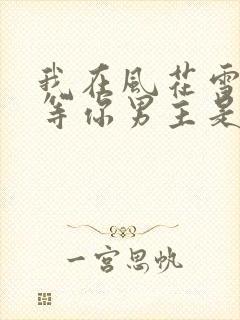 我在風花雪
等你男主是
一宮思帆